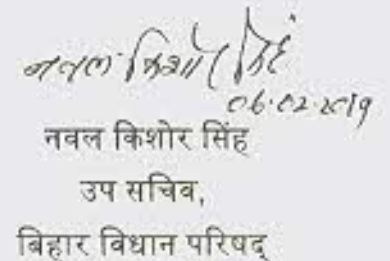 नवल किशोर सिंह
06.02.2019
नवल किशोर सिंह
उप सचिव,
बिहार विधान परिषद्